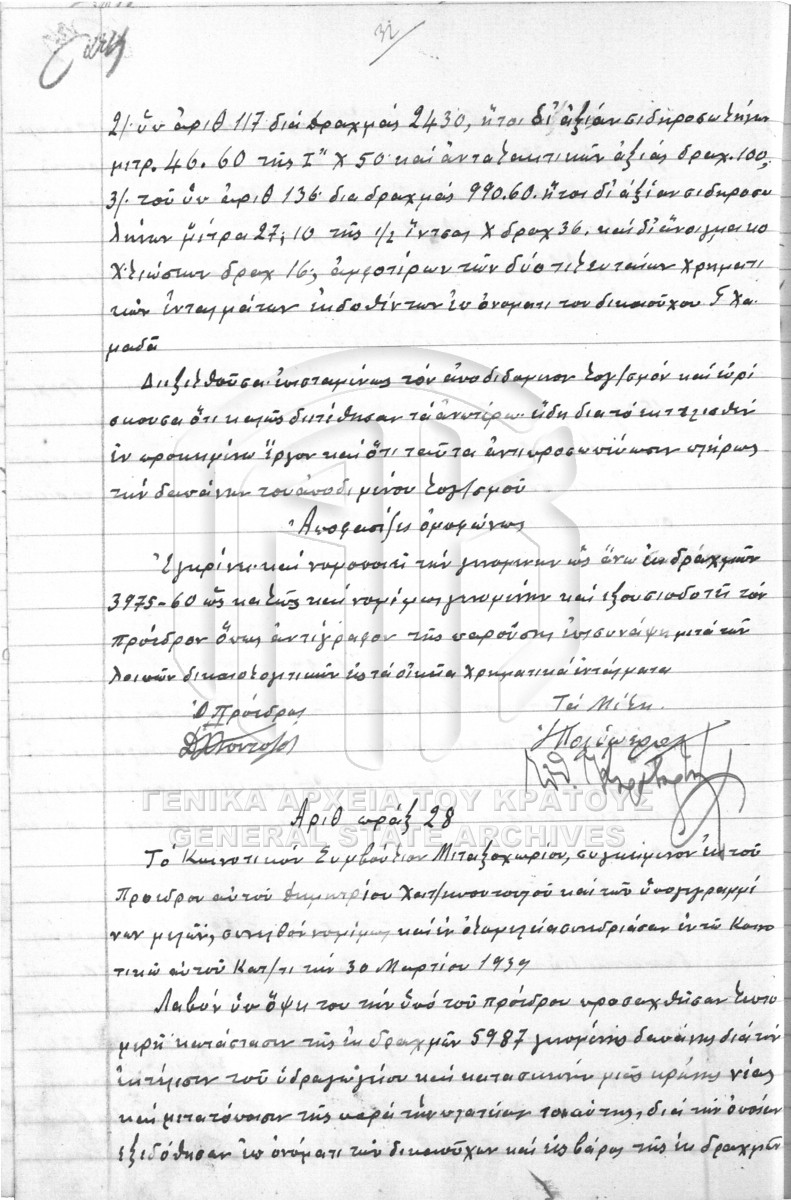 32
2/. ὑπ ἀριθ 117 διά δραχμάς 2430, ἤτοι δι' ἀξίαν σιδηροσωλήνων
μιτρ. 46.60 τῆς 1" Χ 50 καί ἀνταλακτικῶν ἀξίας δραχ. 100,
3/. τοῦ ὑπ ἀριθ 136 δια δραχμάς 990.60. ἤτοι δι' ἀξίαν σιδηροσω
λήνων μέτρα 27,10 τῆς 1/2 ἴντσας Χ δραχ 36. καί δι' ἄνοιγμα κο
χλιώσεων δραχ 16, ἀμφοτέρων τῶν δύο τελευταίων χρηματι
κῶν ἐνταλμάτων ἐκδοθέντων ἐπ ὀνοματι του δικαιούχου Γ Χα
μαδᾶ
Διεξελθοῦσα ἐπισταμένως τόν ἀποδιδομενον λογ/σμόν καί εὑρί
σκουσα ὅτι καλῶς διετέθησαν τά ἀνωτέρω εἴδη δια τό ἐκτελεσθέν
ἐν προκειμένω ἔργον καί ὅτι ταῦτα ἀντιπροσωπεύωσιν πλήρως
τήν δαπάνην του ἀποδιμένου λογ/σμοῦ
Ἀποφασίζει ὁμοφώνως
Ἐγκρίνει καί νομοποιεῖ τήν γενομενην ὡς ἄνω ἐκ δραχμῶν
3975-60 ὡς καλῶς καί νομίμως γενομένην καί εξουσιοδοτεῖ τόν
πρόεδρον ὅπως ἀντίγραφον τῆς παρούσης ἐπισυνάψη μετά τῶν
λοιπῶν δικαιολογητικῶν εἰς τά οἰκεῖα χρηματικά ἐντάλματα
Ὁ Πρόεδρος Τά Μέλη.
ΓΕΝΙΚΑ ΑΡΧΕΙΑ ΤΟΥ ΚΡΑΤΟΥΣ
GENERAL STATE ARCHIVES
Αριθ πράξ 28
Τό Κοινοτικόν Συμβούλιον Μεταξοχωρίου, συγκείμενον ἐκ τοῦ
Προεδρου αὐτοῦ Δημητρίου Χατ/κποντοπούλου καί τῶν ὑπογεγραμμέ
νων μελῶν, συνελθόν νομίμως καί ἐν ὁλομελεία συνεδριάσαν ἐν τῶ Κοινο
τικῶ αὐτοῦ Κατ/τι τήν 30 Μαρτίου 1939
Λαβόν ὑπ ὄψη του τήν ὑπό τοῦ πρόεδρου προσαχθῆσαν λεπτο
μερῆ κατάστασιν τῆς ἐκ δραχμῶν 5987 γενομένης δαπάνης διά τήν
ἐκτέλεσιν τοῦ ὑδραγωγείου καί κατασκευήν μιᾶς κρήνης νέας
καί μετατόπισιν τῆς παρά τήν πλατείαν τοιαύτης, διά τήν ὁποίαν
ἐξεδόθησαν ἐπ ὀνόματι τῶν δικαιούχων καί εἰς βάρος τῆς ἐκ δραχμῶν